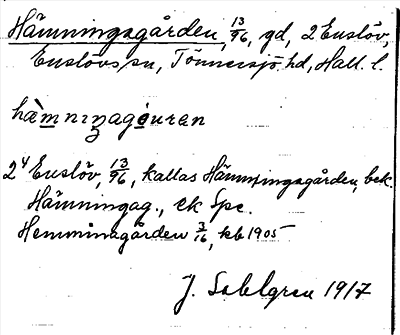 Hämningsgården, 13/96, gd, 2 Enslöv,
Enslövs sn, Tönnersjö hd, Hall. l.
hàmnıngagǫuran
2⁴ Enslöv, 13/96, kallas Hämmingsgården, bek.
Hämningag., ek Spe.
Hemmingsgården 3/16, kb 1905
J. Sahlgren 1917